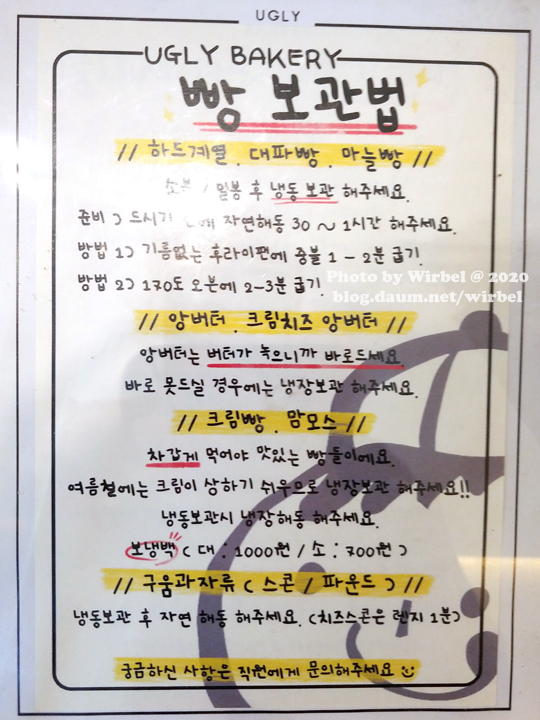 UGLY
UGLY BAKERY
빵 보관법
// 하드계열 . 대파빵 . 마늘빵 //
소분 / 밀봉 후 냉동 보관 해주세요.
준비 ) 드시기 전에 자연해동 30 ~ 1시간 해주세요.
방법 1) 기름없는 후라이팬에 중불 1 - 2분 굽기.
방법 2) 170도 오븐에 2-3분 굽기.
Photo by Wirbel @ 2020
blog.daum.net/wirbel
// 앙버터 . 크림치즈 앙버터 //
앙버터는 버터가 녹으니까 바로드세요.
바로 못드실 경우에는 냉장보관 해주세요.
// 크림빵 . 맘모스 //
차갑게 먹어야 맛있는 빵들이에요.
여름철에는 크림이 상하기 쉬우므로 냉장보관 해주세요!!
냉동보관시 냉장해동 해주세요.
보냉백 ( 대 : 1000원 / 소 : 700원 )
// 구움과자류 ( 스콘 / 파운드 ) //
냉동보관 후 자연 해동 해주세요. (치즈스콘은 렌지 1분)
궁금하신 사항은 직원에게 문의해주세요